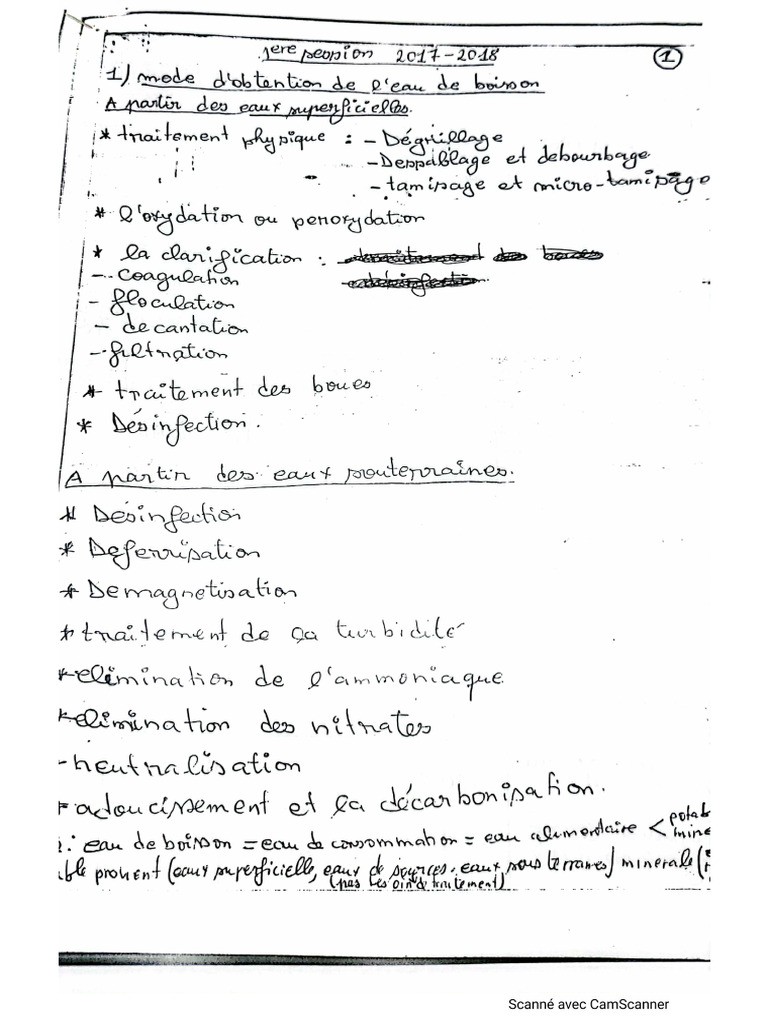 1ere session 2017-2018
1
1) mode d'obtention de l'eau de boisson
A partir des eaux superficielles.
* traitement physique : - Dégrillage
- Dessablage et debourbage
- tamisage et micro-tamisage
* l'oxydation ou peroxydation
* la clarification :
- coagulation
- floculation
- decantation
- filtration
* traitement des boues
* Désinfection.
A partir des eaux souterraines.
* Désinfection
* Deferrisation
* Demagnetisation
* traitement de ça turbidité
* elimination de l'ammoniaque
* elimination des nitrates
- neutralisation
- adoucissement et la décarbonisation.
eau de boisson = eau de consommation = eau alimentaire <
provient (eaux superficielle, eaux de sources, eaux sous terraines) minerale (
(pas besoin de traitement)
Scanné avec CamScanner